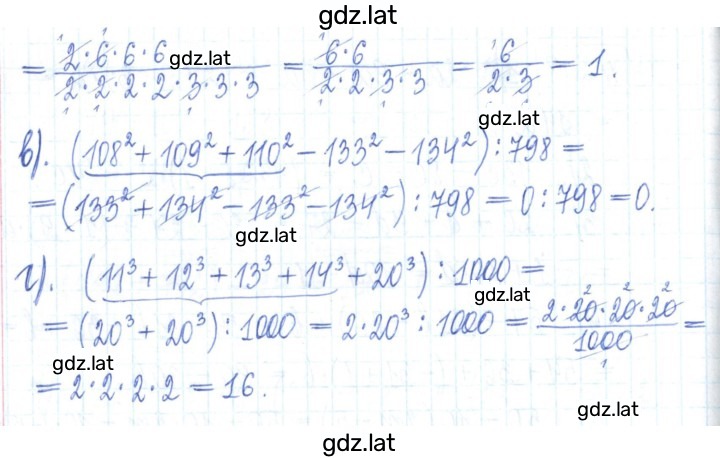 gdz.lat
= 2·6·6·6 / 2·2·2·2·3·3·3 = 6·6 / 2·2·3·3 = 6 / 2·3 = 1.
gdz.lat
в). (108² + 109² + 110² − 133² − 134²) : 798 =
= (133² + 134² − 133² − 134²) : 798 = 0 : 798 = 0.
gdz.lat
г). (11³ + 12³ + 13³ + 14³ + 20³) : 1000 =
gdz.lat
= (20³ + 20³) : 1000 = 2·20³ : 1000 = 2·20·20·20 / 1000 =
gdz.lat
= 2·2·2·2 = 16.
gdz.lat
gdz.lat